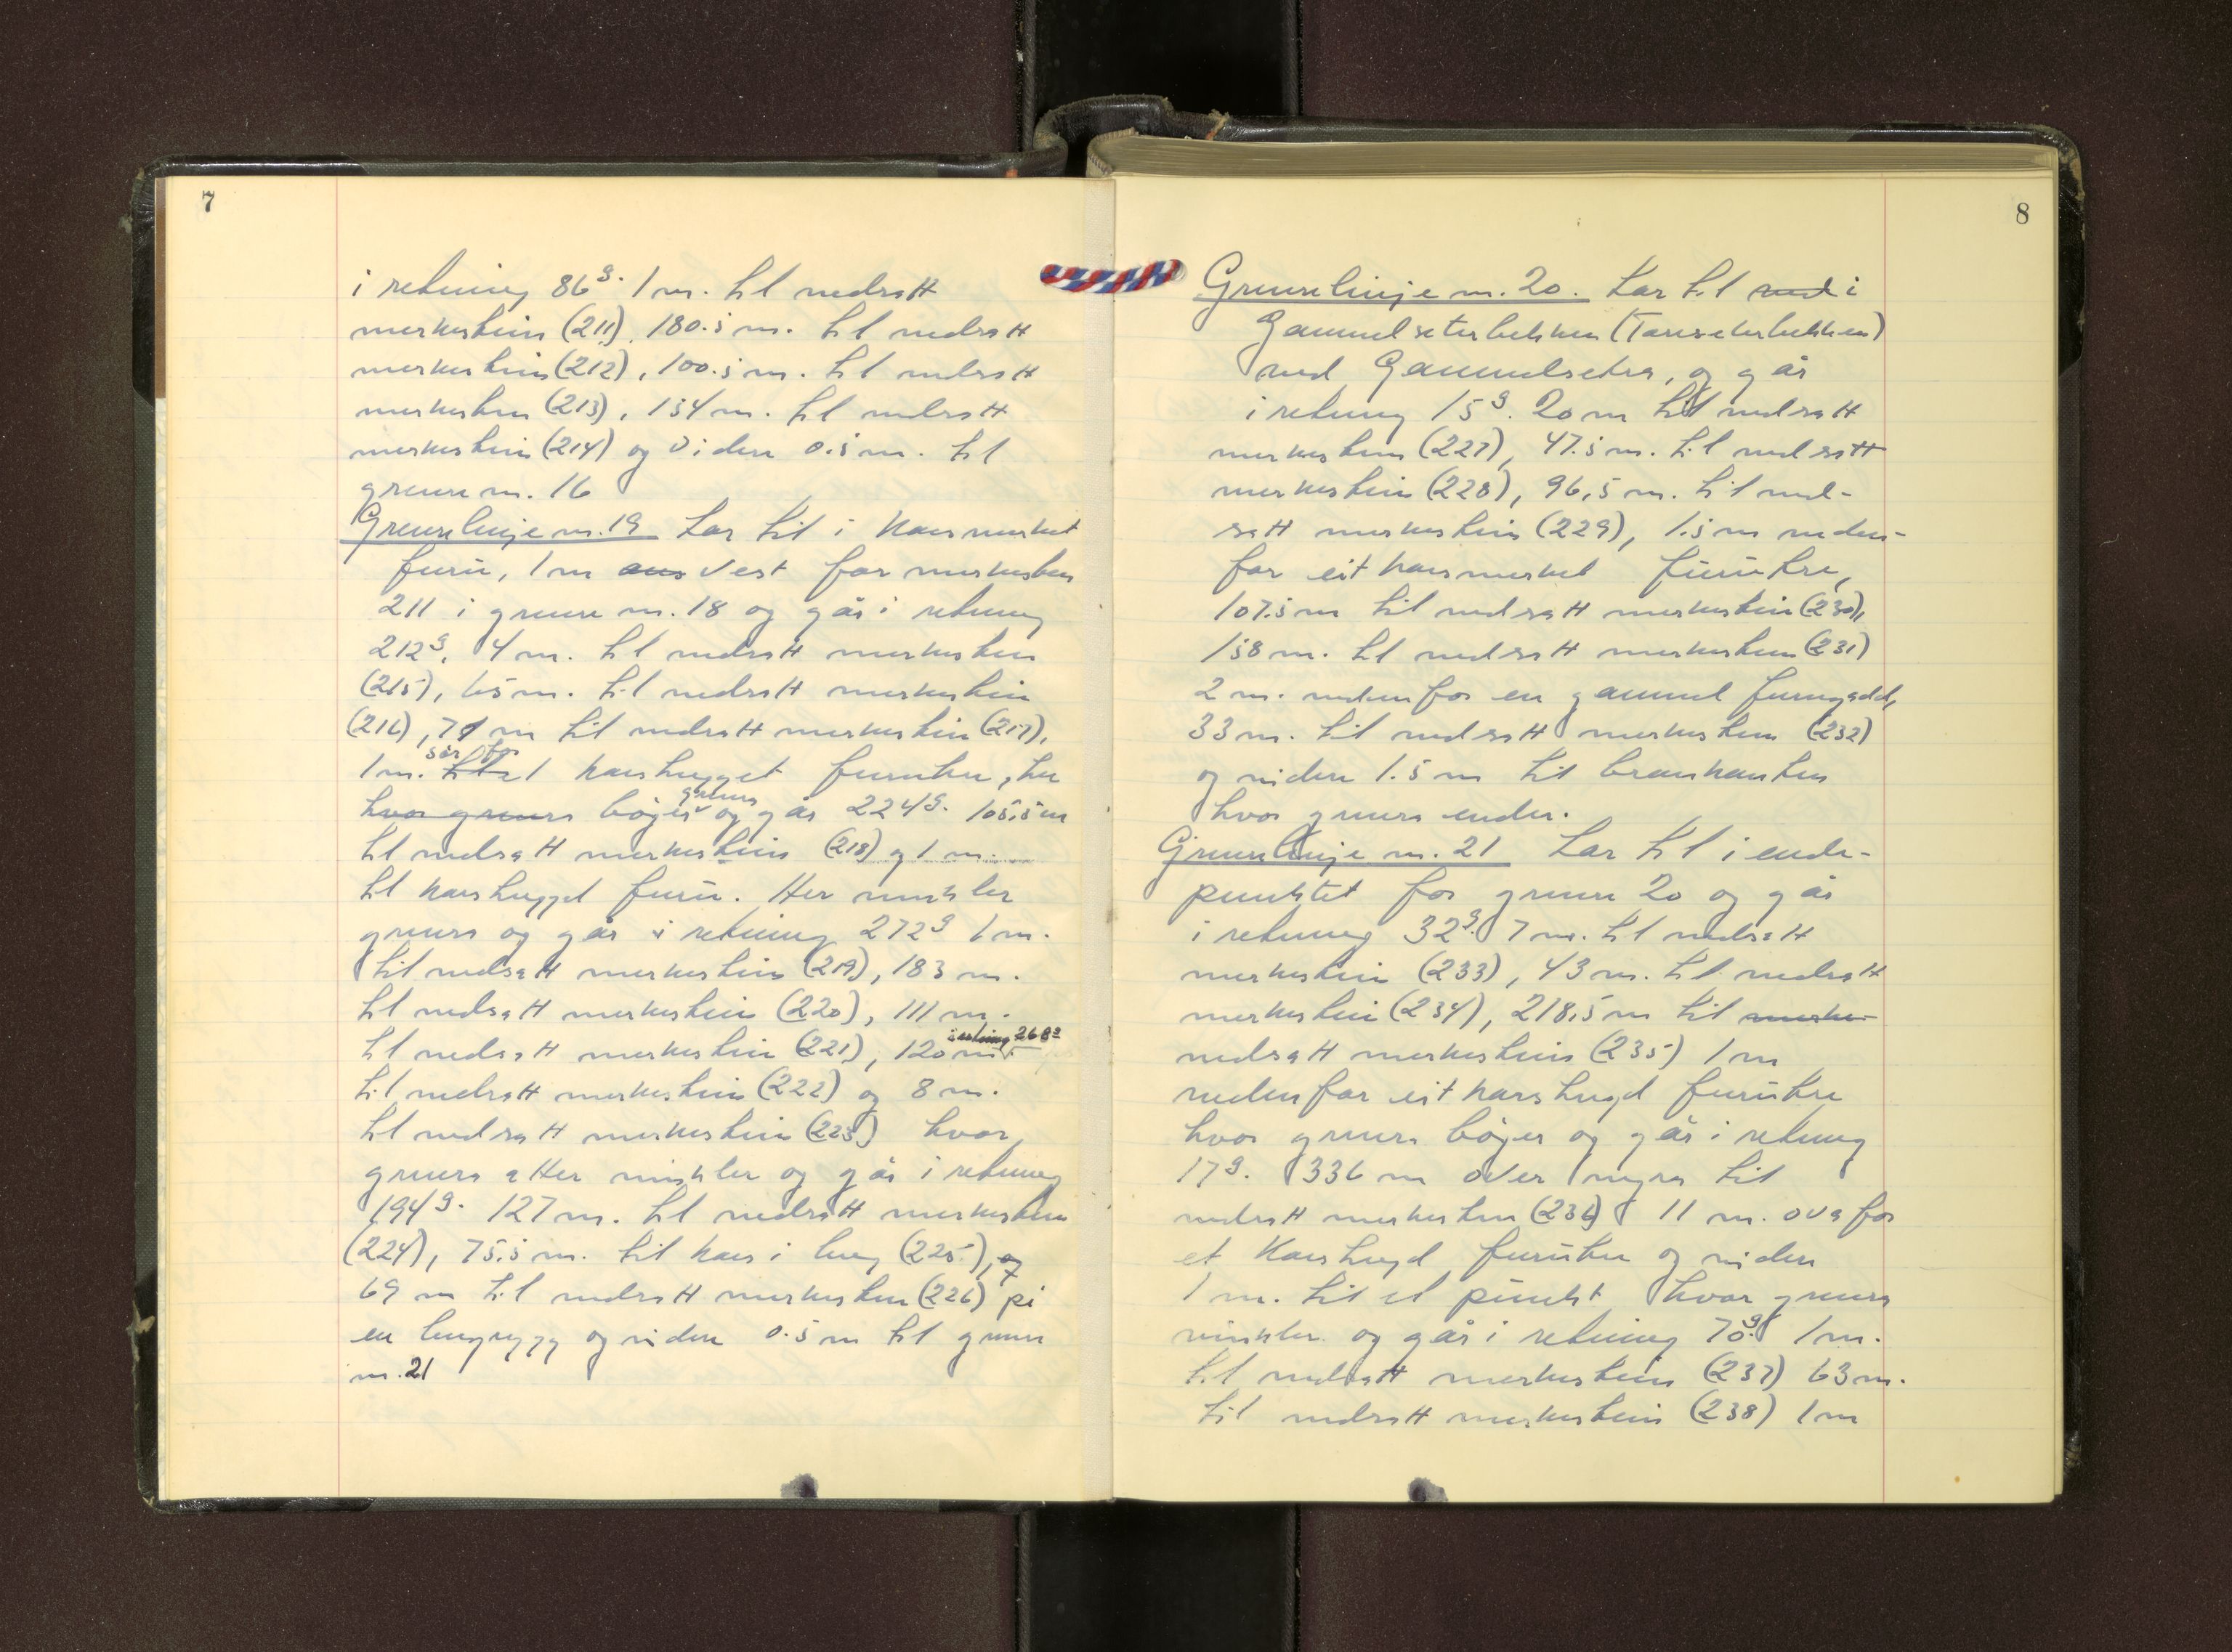 7
i retning 86g. 1 m. til nedsatt
merkestein (211), 180.5 m. til nedsatt
merkestein (212), 100.5 m. til nedsatt
merkestein (213), 154 m. til nedsatt
merkestein (214) og videre 0.5 m. til
grense nr. 16
Grenselinje nr. 19 tar til i krossmerket
furu, 1 m vest for merkestein
211 i grense nr. 18 og går i retning
212g, 4 m. til nedsatt merkestein
(215), 65 m. til nedsatt merkestein
(216), 71 m til nedsatt merkestein (217),
1 m. sør for krosshugget furutre, her
hvor grensa bøyer grensa og går 224g. 105,5 m
til nedsatt merkestein (218) og 1 m.
til krosshugget furu. Her vinkler
grensa og går i retning 272g 1 m.
til nedsatt merkestein (219), 183 m.
til nedsatt merkestein (220), 111 m.
til nedsatt merkestein (221), 120 m i retning 268g
til nedsatt merkestein (222) og 8 m.
til nedsatt merkestein (223) hvor
grensa atter vinkler og går i retning
194g. 127 m. til nedsatt merkestein
(224), 75.5 m. til kross i berg (225), og
69 m til nedsatt merkestein (226) på
en bergrygg og videre 0.5 m til grense
nr. 21
8
Grenselinje nr. 20. tar til ved i
Gammelseterbekken (Tareseterbekken)
ved Gammelsetra, og går
i retning 15g. 20 m til nedsatt
merkestein (227), 47.5 m. til nedsatt
merkestein (228), 96,5 m. til ned-
satt merkestein (229), 1.5 m neden-
for eit krossmerket furutre,
107.5 m til nedsatt merkestein (230),
158 m. til nedsatt merkestein (231)
2 m. nedenfor en gammel furugadd,
33 m. til nedsatt merkestein (232)
og videre 1.5 m til
hvor grensa ender.
Grenselinje nr. 21 tar til i ende-
punktet for grense 20 og går
i retning 32g. 7 m. til nedsatt
merkestein (233), 43 m. til nedsatt
merkestein (234), 218,5 m til merke-
nedsatt merkestein (235) 1 m
nedenfor eit krosshugd furutre
hvor grensa bøyer og går i retning
17g. 336 m over myra til
nedsatt merkestein (236) 11 m. ovafor
et krosshugd furutre og videre
1 m. til et punkt hvor grensa
vinkler og går i retning 70g. 1 m.
til nedsatt merkestein (237) 63 m.
til nedsatt merkestein (238) 1 m